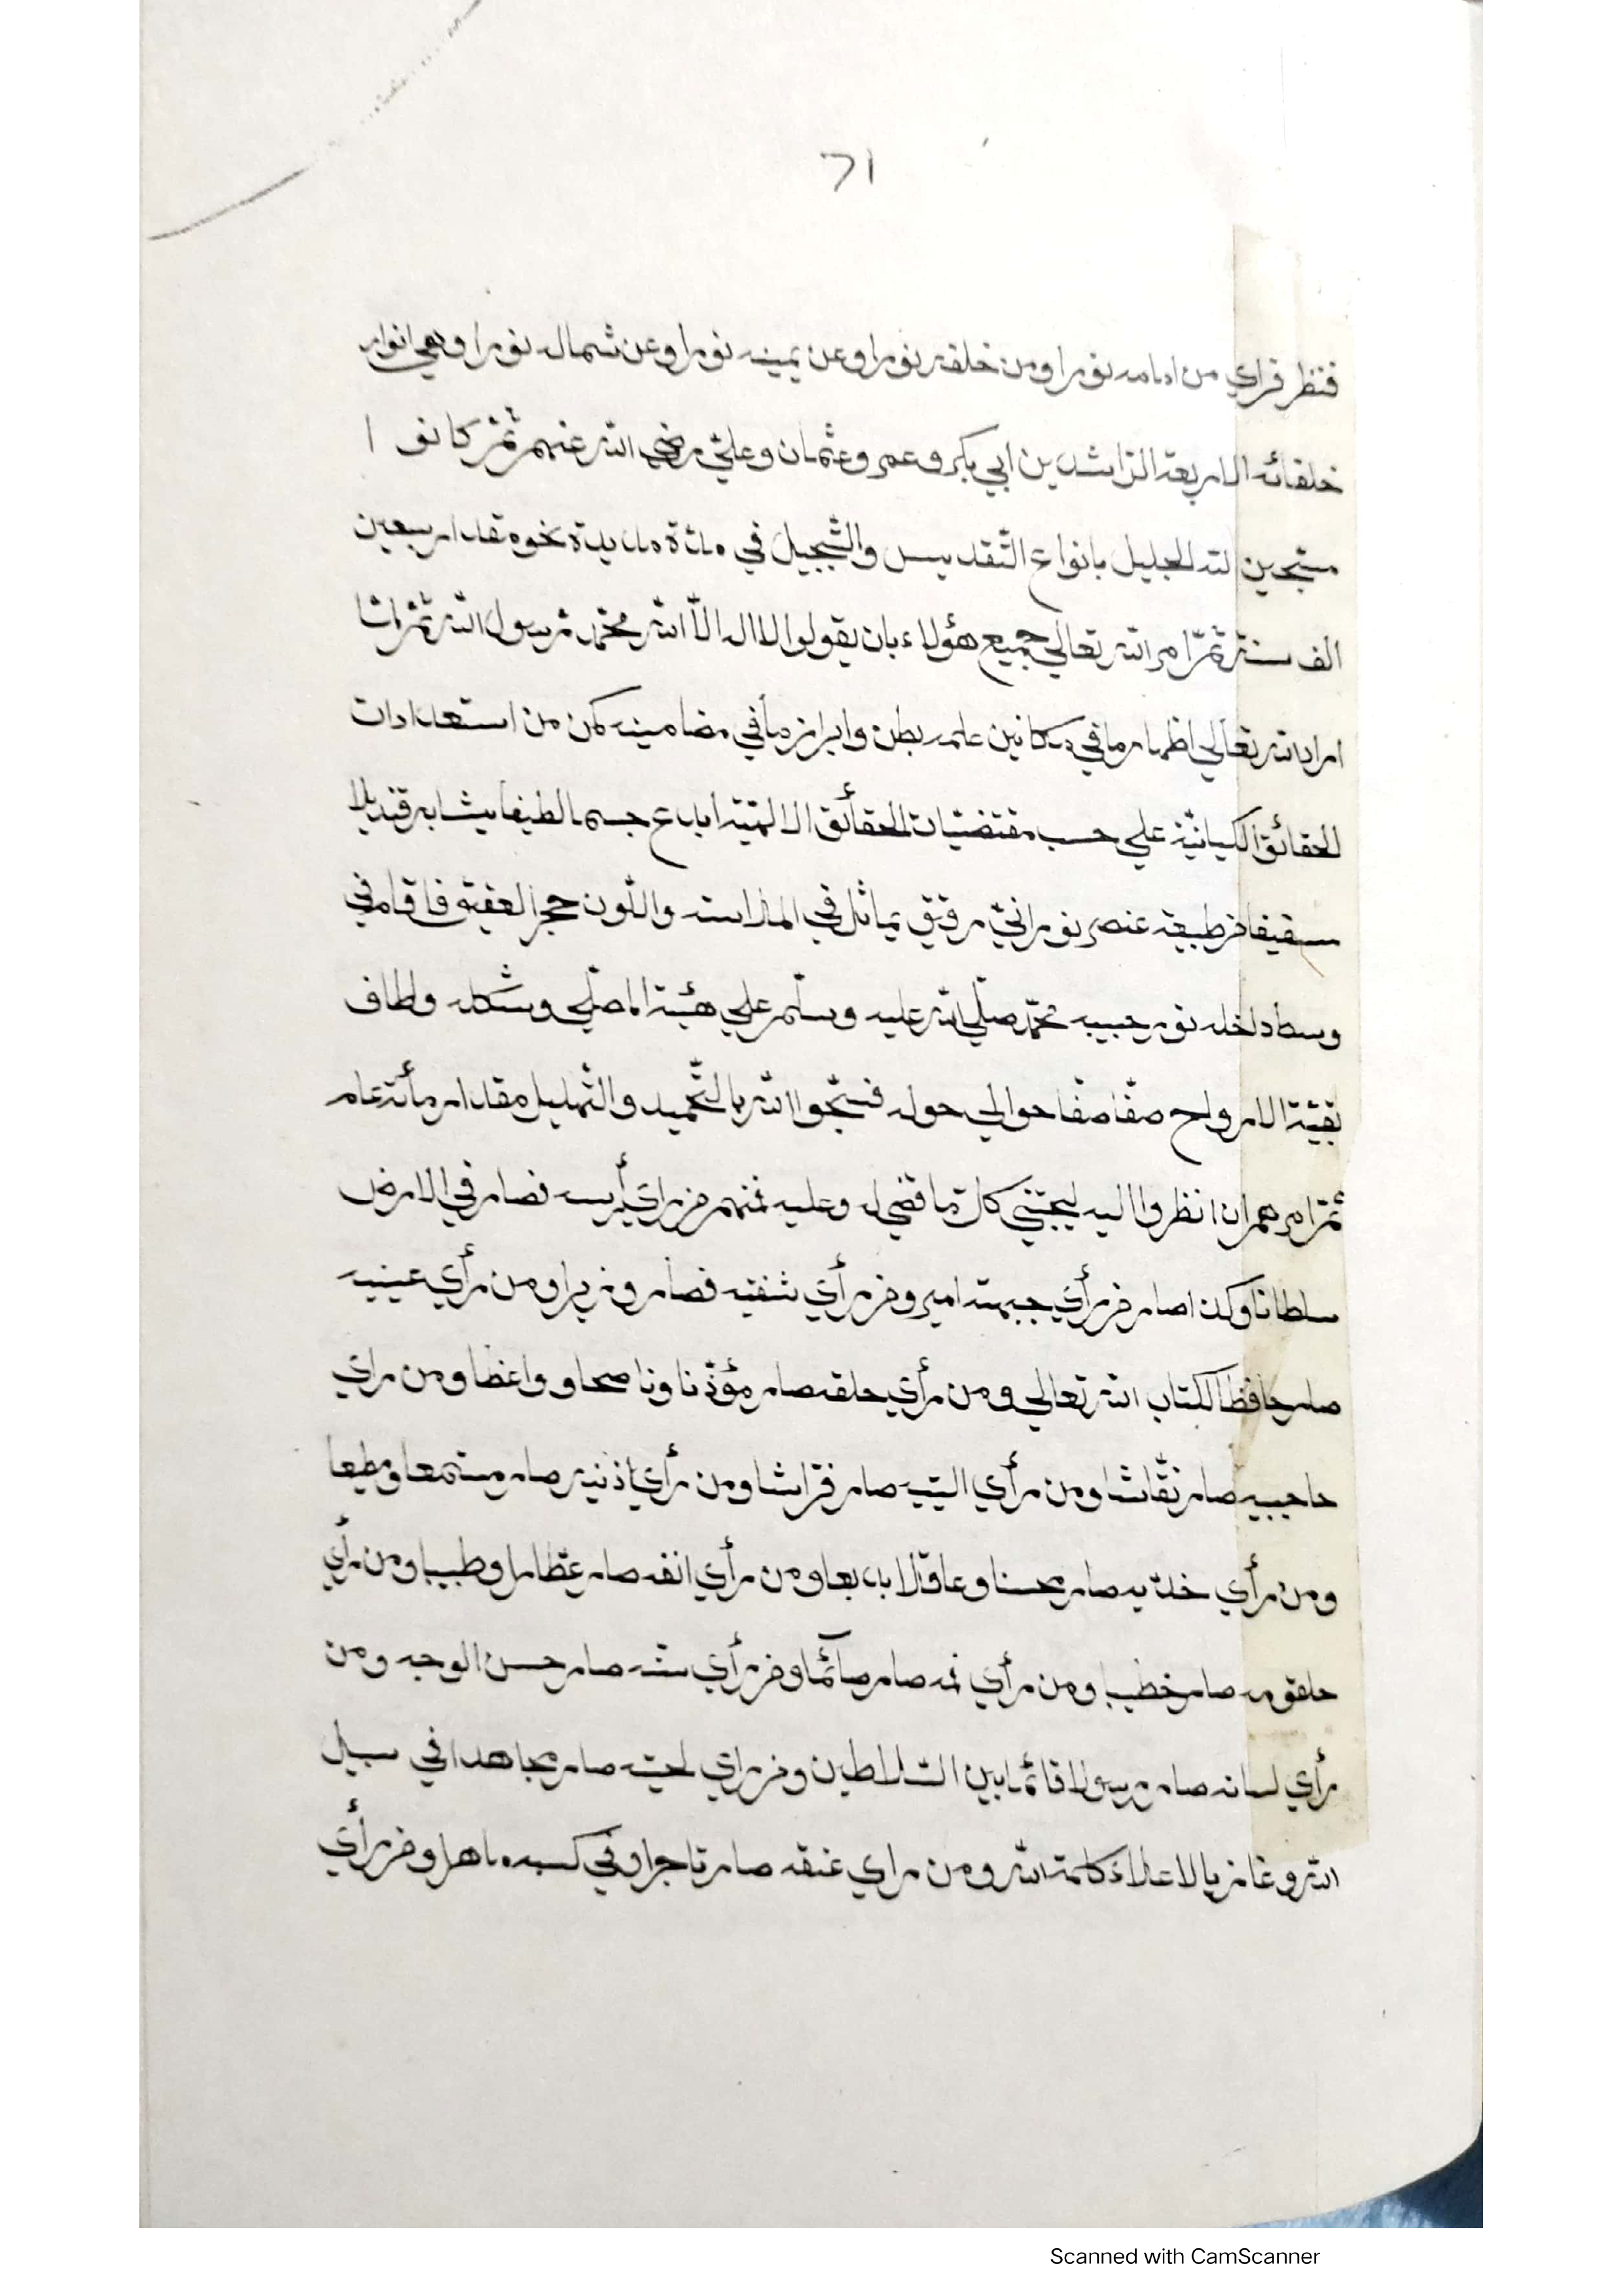 71
فنظر فراي من امامه نورا ومن خلفه نورا وعن يمينه نورا وعن شماله نورا وهي انوار
خلفائه الاربعة الراشدين ابي بكر وعمر وعثمان وعلي رضي الله عنهم ثم كانوا
مسبحين لله الجليل بانواع التقديس والتبجيل في مدة مديدة نحو مقدار سبعين
الف سنة ثم امر الله تعالي جميع هؤلاء بان يقولوا لا اله الا الله محمد رسول الله ثم لما
اراد الله تعالي اظهار ما في مكانين علمه بطن وابراز ما في مضامينه كمن من استعدادات
الحقائق الكيانية علي حسب مقتضيات الحقائق الالهية ابدع جسما لطيفا يشابه قنديلا
سقيفا من طبيعة عنصر نوراني رقيق يماثل في الملاسة واللون حجر العقيق فاقام في
وسط داخله نور حبيبه محمد صلي الله عليه وسلم علي هيئة المصلي وشكله ولطاف
بقية الارواح صفا صفا حوالي حوله فسبحوا الله بالتحميد والتهليل مقدار مأئة عام
ثم امرهم ان انظروا اليه ليجتني كل ما قضي له وعليه فمنهم من راي رأسه فصار في الارض
سلطانا وكذا صار من رأي جبهته امير ومن رأي شفتيه فصار وزيرا ومن رأي عينيه
صار حافظا لكتاب الله تعالي ومن رأي حلقه صار مؤذنا وناصحا وواعظا ومن راي
حاجبيه صار نقاشا ومن رأي اليتيه صار فراشا ومن رأي اذنيه صار مستمعا ومطيعا
ومن رأي خديه صار محسنا وعاقلا بديعا ومن رأي انفه صار عطارا وطبيبا ومن رأي
حلقومه صار خطيبا ومن رأي فمه صار صآئما ومن رأي سنه صار حسن الوجه ومن
رأي لسانه صار رسولا قائما بين السلاطين ومن راي لحيته صار مجاهدا في سبيل
الله وغازيا لاعلاء كلمة الله ومن راي عنقه صار تاجرا وفي كسبه ماهرا ومن رأي
Scanned with CamScanner